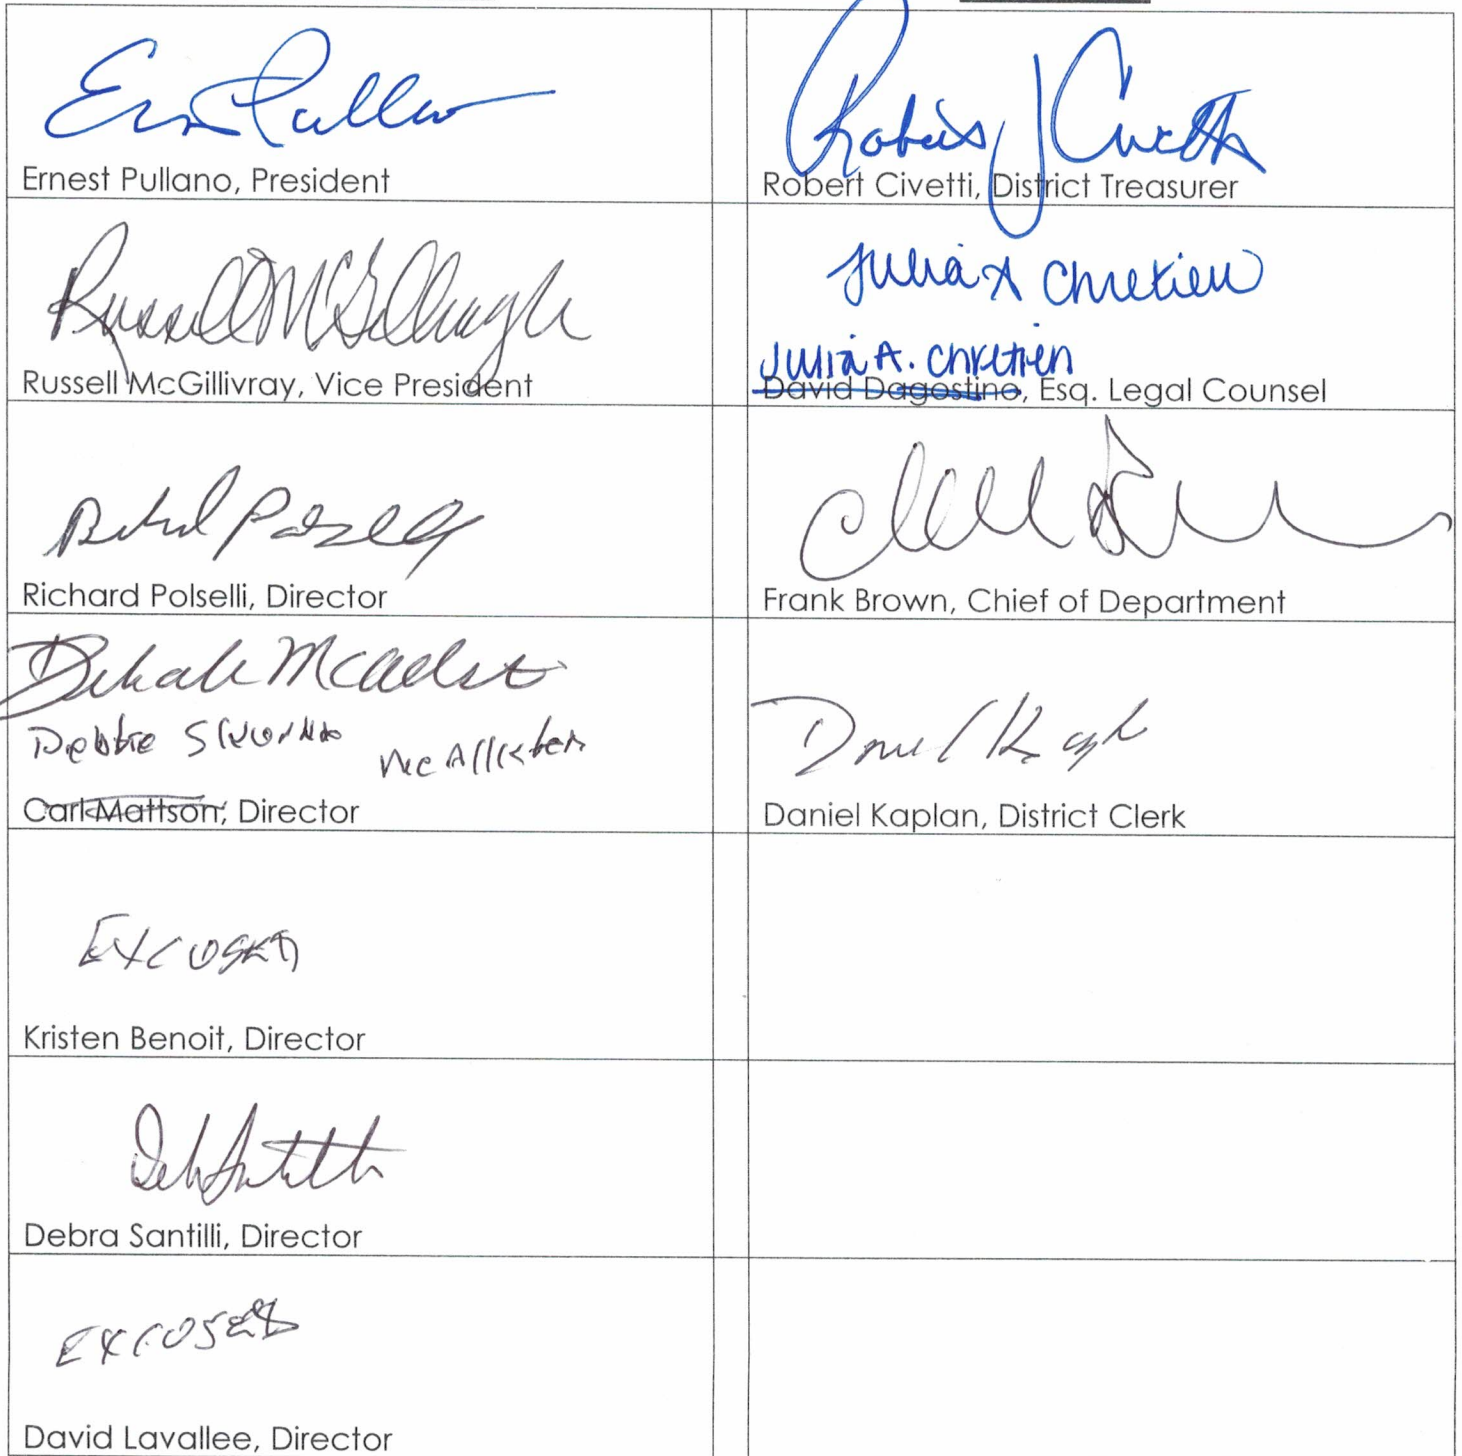 Ernest Pullano, President
Robert J Civetti
Robert Civetti, District Treasurer
Russell McGillivray
Russell McGillivray, Vice President
Julia A Chretien
Julia A. Chretien
David Dagostino, Esq. Legal Counsel
Richard Polselli, Director
Frank Brown, Chief of Department
Debbie
McAllister
Carl Mattson, Director
Daniel Kaplan, District Clerk
EXCUSED
Kristen Benoit, Director
Debra Santilli, Director
EXCUSED
David Lavallee, Director